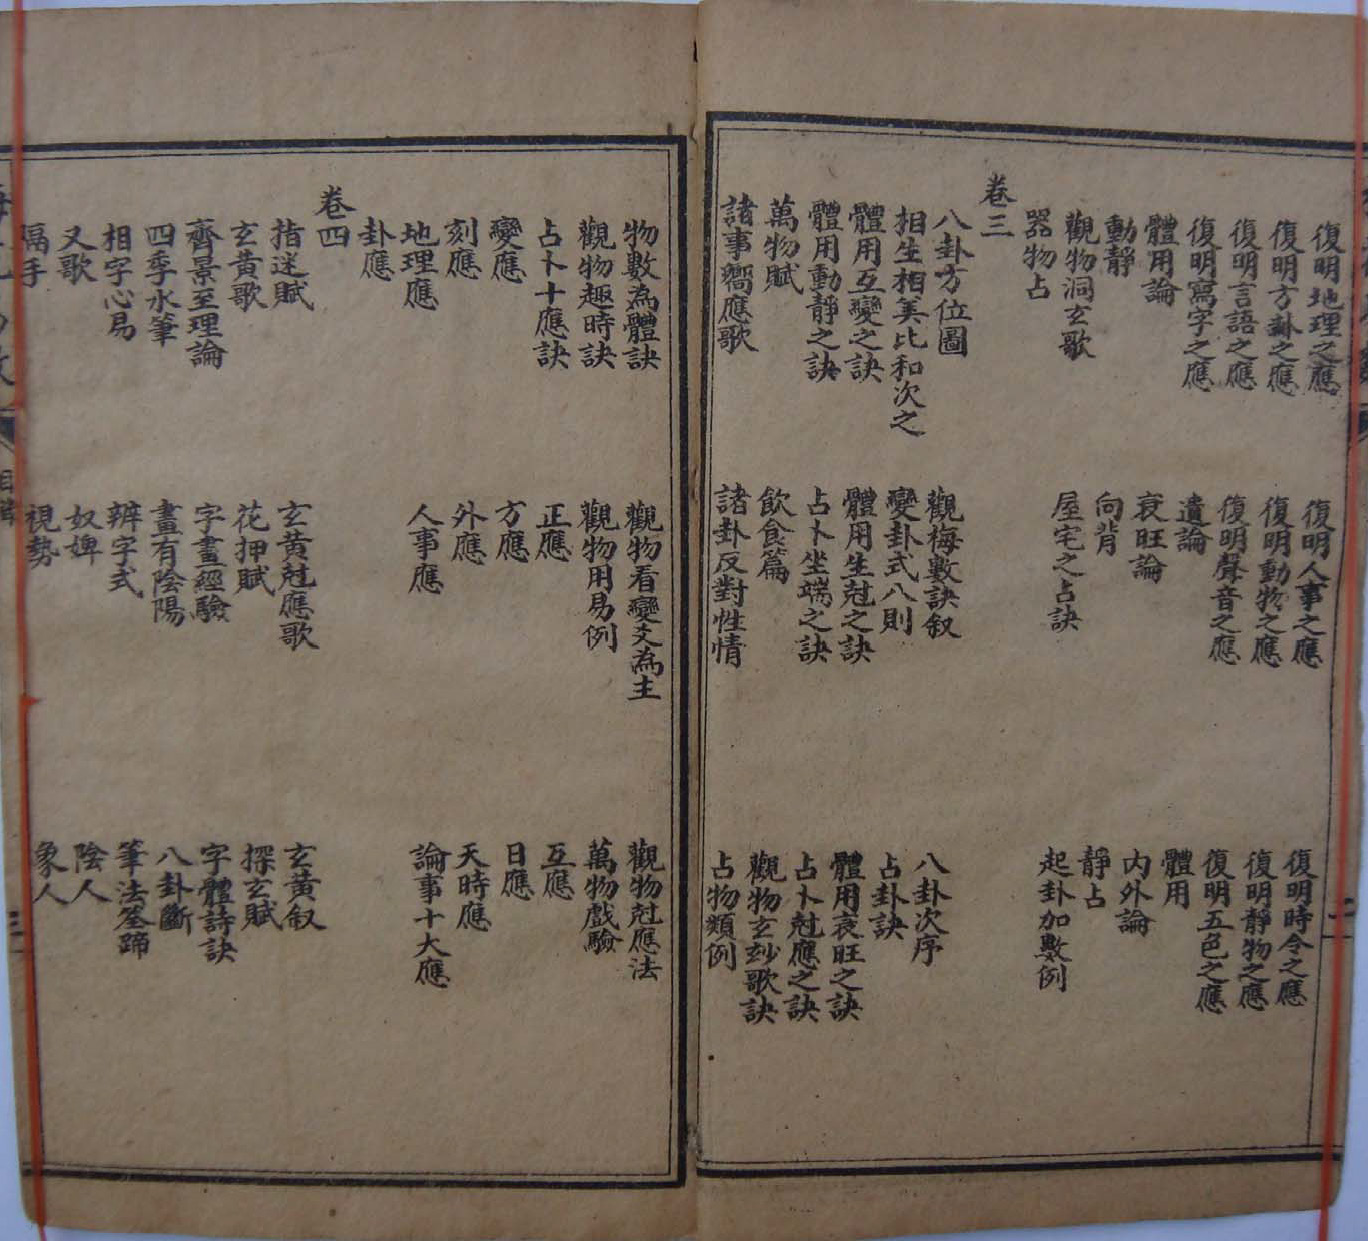 復明地理之應　復明人事之應　復明時令之應
復明方卦之應　復明動物之應　復明靜物之應
復明言語之應　復明聲音之應　復明五色之應
復明寫字之應　遺論　體用
體用論　衰旺論　內外論
動靜　向背　靜占
觀物洞玄歌　屋宅之占訣　起卦加數例
器物占
卷三
八卦方位圖　觀梅數訣叙　八卦次序
相生相美比和次之　變卦式八則　占卦訣
體用互變之訣　體用生尅之訣　體用衰旺之訣
體用動靜之訣　占卜坐端之訣　占卜尅應之訣
萬物賦　飲食篇　觀物玄玅歌訣
諸事嚮應歌　諸卦反對性情　占物類例
物數為體訣　觀物看變爻為主　觀物尅應法
觀物趣時訣　觀物用易例　萬物戲驗
占卜十應訣　正應　互應
變應　方應　日應
刻應　外應　天時應
地理應　人事應　論事十大應
卦應
卷四
指迷賦　玄黃尅應歌　玄黃叙
玄黃歌　花押賦　探玄賦
齊景至理論　字畫經驗　字體詩訣
四季水筆　畫有陰陽　八卦斷
相字心易　辨字式　筆法筌蹄
又歌　奴婢　陰人
隔手　視勢　象人